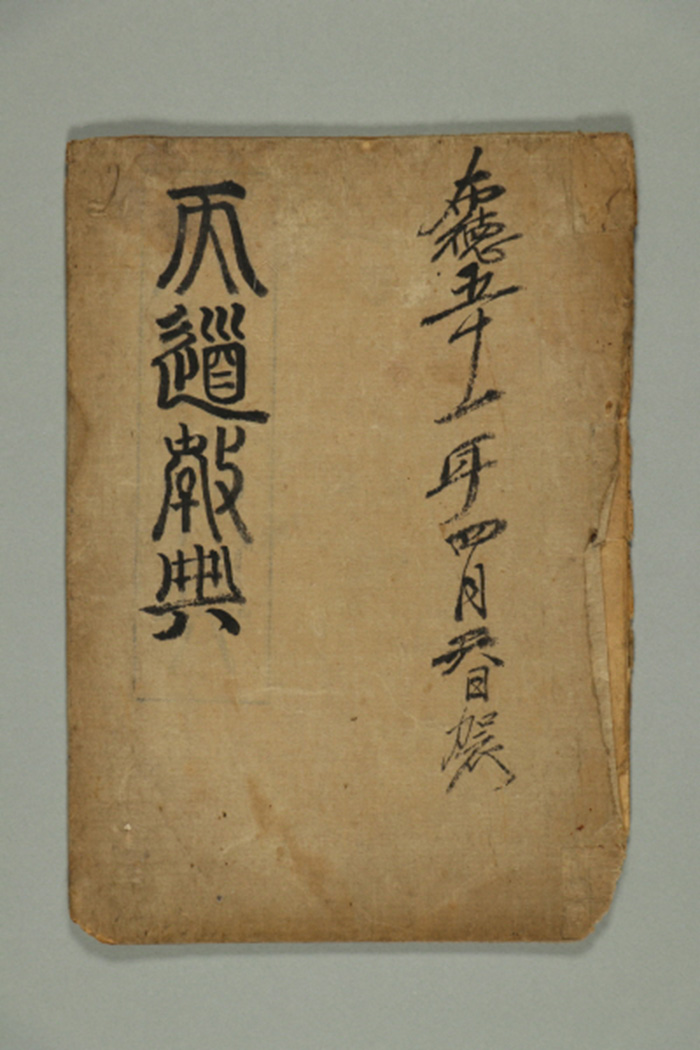 布德五十一年四月日
天道敎典